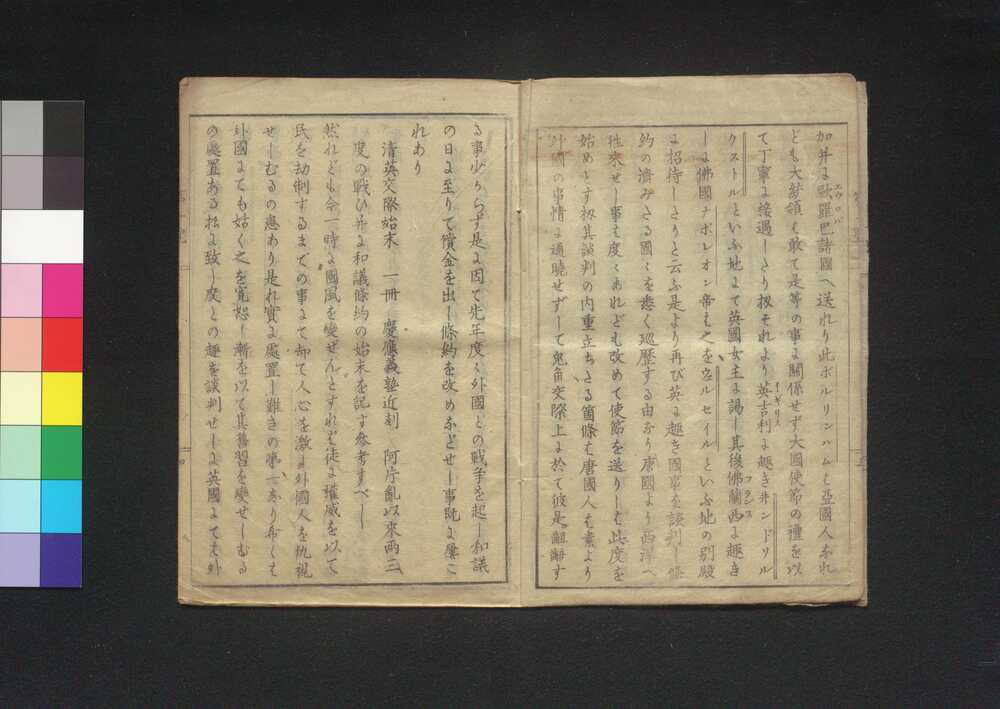 加并に歐羅巴諸國へ送れり此ボルリンハムは亞國人なれ
ども大統領は敢て是等の事に關係せず大國使節の禮を以
て丁寧に接遇したり扨それより英吉利に趣き井ンドリル
クストルといふ地にて英國女主に謁し其後佛蘭西に趣き
しに佛國ナポレオン帝も之をウルセイルといふ地の別殿
に招待したりと云ふ是より再び英に趣き國事を談判し條
約の濟みたる國々を悉く巡歴する由なり唐國より西洋へ
往來せし事は度々あれども改めて使節を送りしは此度を
始めとす扨其談判の内重立ちたる箇條は唐國人は素より
外國の事情に通曉せずして兎角交際上に於て彼是齟齬す
る事少からず是に因て先年度々外國との戰爭を起し和議
の日に至りて償金を出し條約を改めなどせし事既に屡々
れあり
清英交際始末 一冊 慶應義塾近刻 阿片亂以來兩三
度の戰ひ并に和議條約の始末を記す參考すべし
然れども今一時に國風を變ぜんとすれば徒に權威を以て
民を劫制するまでの事にて却て人心を激し外國人を仇視
せしむるの患あり是れ實に處置し難きの第一なり希くは
外國にても姑く之を寛恕し漸を以て其舊習を變せしむる
の處置ある樣に致し度との趣を談判せしに英國にても外